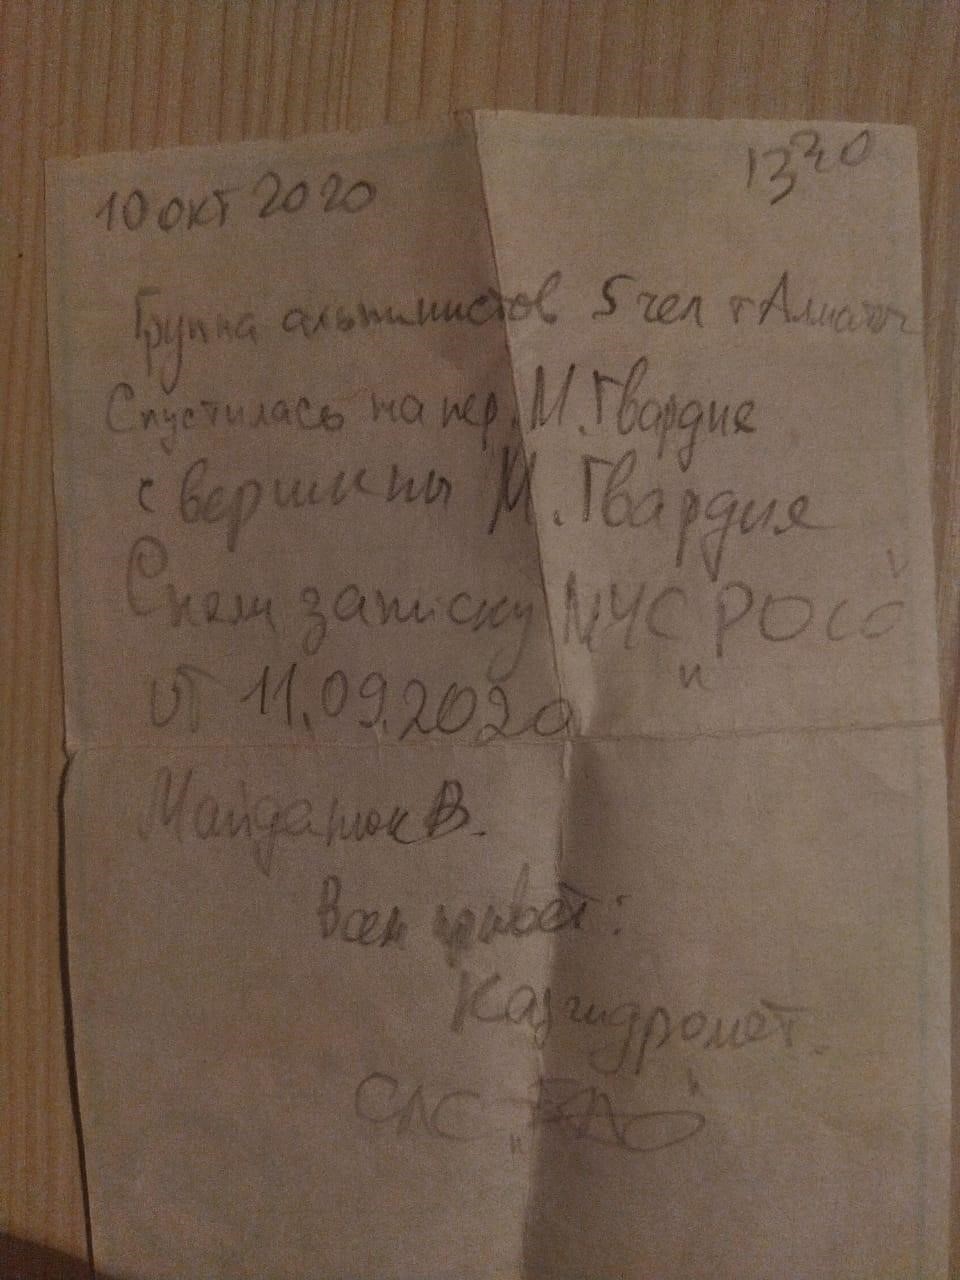 10 окт 2020 13 20
Группа альпинистов 5 чел г Алматы
Спустилась на пер. М. Гвардия
с вершины М. Гвардия
Сняли записку МЧС "РОСО"
от 11.09.2020
Майданюк В.
Всем привет:
Казгидромет.
СЛС